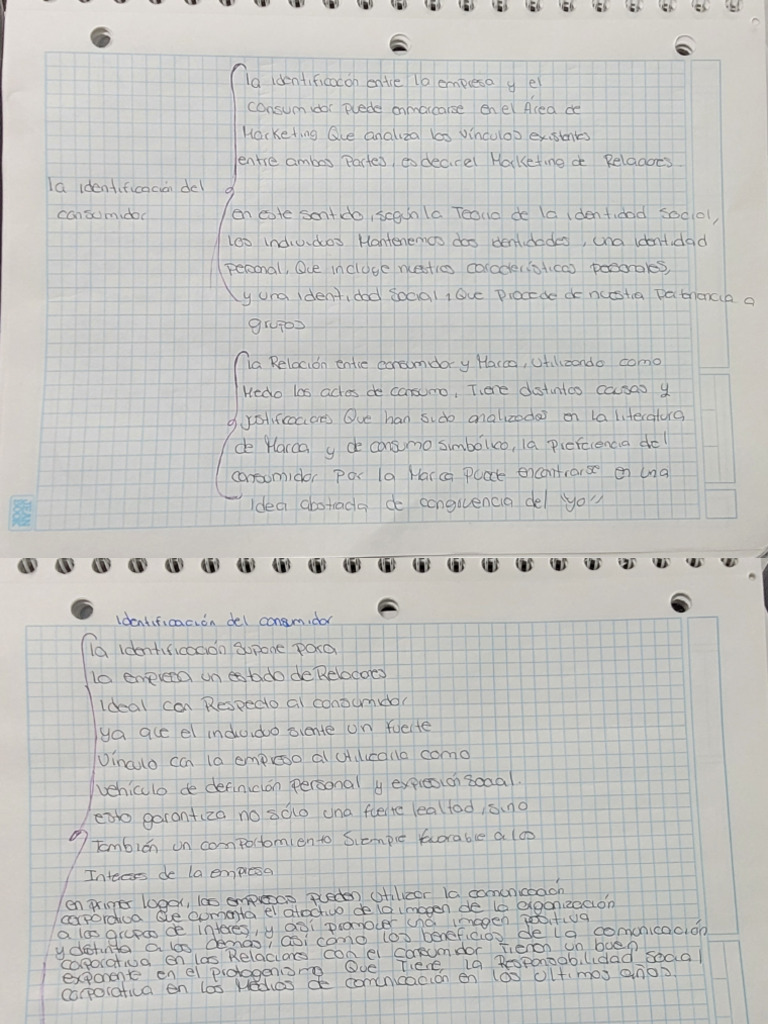 la identificación entre la empresa y el
consumidor puede enmarcarse en el Área de
Marketing Que analiza los vínculos existentes
entre ambas Partes, es decir el Marketing de Relaciones
la identificación del
consumidor
en este sentido, según la Teoría de la identidad social,
los individuos Mantenemos dos identidades, una identidad
Personal, Que incluye nuestras características personales,
y una identidad social, Que procede de nuestra Patenencia a
grupos
la Relación entre consumidor y Marca, utilizando como
Medio los actos de consumo, Tiene distintas causas y
justificaciones Que han sido analizadas en la literatura
de Marca y de consumo simbólico, la preferencia del
consumidor Por la Marca puede encontrarse en una
idea abstracta de congruencia del "yo"
Identificación del consumidor
la identificación supone para
la empresa un estado de Relaciones
ideal con Respecto al consumidor
ya que el individuo siente un fuerte
Vínculo con la empresa al utilizarla como
vehículo de definición Personal y expresión social.
esto garantiza no sólo una fuerte lealtad, sino
También un comportamiento siempre favorable a los
Interes de la empresa
en primer lugar, las empresas pueden utilizar la comunicación
corporativa Que aumenta el atractivo de la imagen de la organización
a los grupos de interés, y así promover una imagen positiva
y distinta a los demás, así como los beneficios de la comunicación
corporativa en las Relaciones con el consumidor Tienen un buen
exponente en el protagonismo Que Tiene la Responsabilidad social
corporativa en los Medios de comunicación en los últimos años.